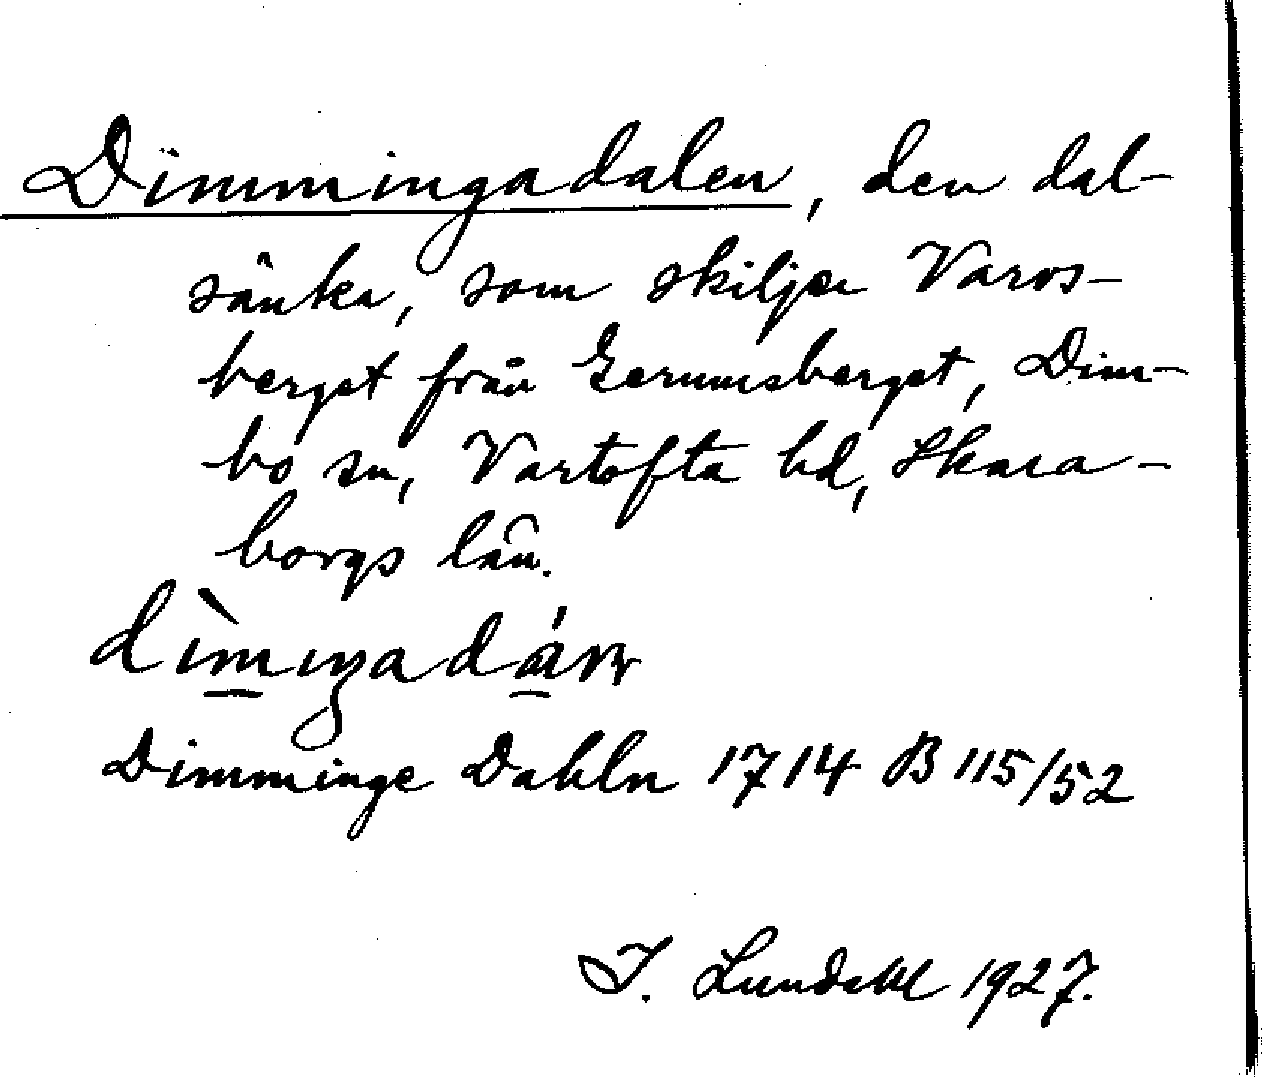 Dimmingadalen, den dal-
sänka, som skiljer Varvs-
berget från Gerumsberget, Dim-
bo sn, Vartofta hd, Skara-
borgs län.
Dimminge Dahln 1714 B 115/52
I. Lundahl 1927.